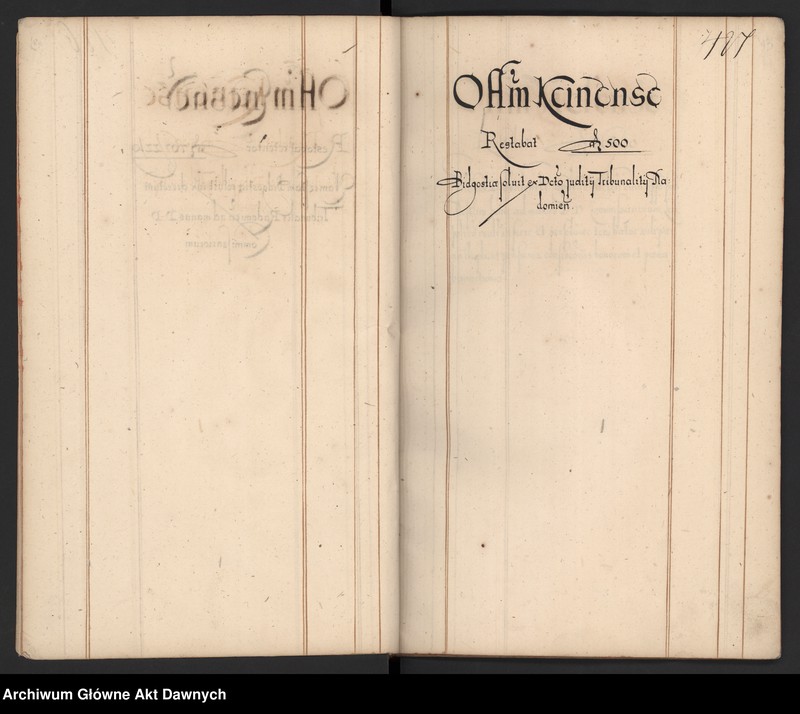 487
Offm Kcinense
Restabat fl 500
Bidgostiæ soluit ex Dcto judity Tribunality Ra-
domień.
Archiwum Główne Akt Dawnych